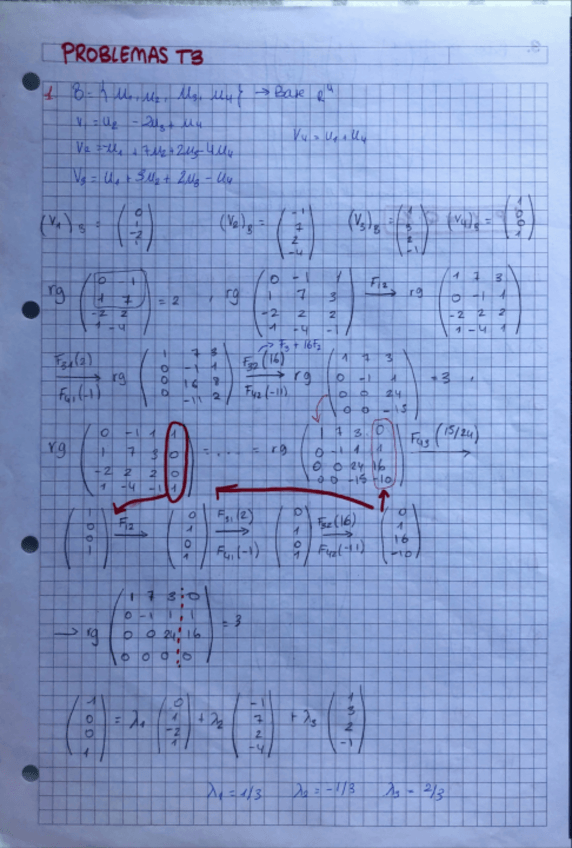 PROBLEMAS T3
1 B = { u1, u2, u3, u4 } → Base R^4
v1 = u2 - 2u3 + u4
v4 = u1 + u4
v2 = -u1 + 7u2 + 2u3 - 4u4
v3 = u1 + 3u2 + 2u3 - u4
(v1)_B = ( 0 1 -2 ) (v2)_B = ( -1 7 2 -4 ) (v3)_B = ( 1 3 2 -1 ) (v4)_B = ( 1 0 0 1 )
rg ( 0 -1 ; 1 7 ; -2 2 ; 1 -4 ) = 2 , rg ( 0 -1 1 ; 1 7 3 ; -2 2 2 ; 1 -4 -1 ) F12 → rg ( 1 7 3 ; 0 -1 1 ; -2 2 2 ; 1 -4 1 )
→ F3 + 16F2
F31(2) F41(-1) → rg ( 1 7 3 ; 0 -1 1 ; 0 16 8 ; 0 -11 2 ) F32(16) F42(-11) → rg ( 1 7 3 ; 0 -1 1 ; 0 0 24 ; 0 0 -15 ) = 3 ,
rg ( 0 -1 1 1 ; 1 7 3 0 ; -2 2 2 0 ; 1 -4 -1 1 ) = .... = rg ( 1 7 3 0 ; 0 -1 1 1 ; 0 0 24 16 ; 0 0 -15 -10 ) F43(15/24) →
( 1 0 0 1 ) F12 → ( 0 1 0 1 ) F31(2) F41(-1) → ( 0 1 0 1 ) F32(16) F42(-11) → ( 0 1 16 -10 )
→ rg ( 1 7 3 0 ; 0 -1 1 1 ; 0 0 24 16 ; 0 0 0 0 ) = 3
( 1 0 0 1 ) = λ1 ( 0 1 -2 1 ) + λ2 ( -1 7 2 -4 ) + λ3 ( 1 3 2 -1 )
λ1 = 1/3 λ2 = -1/3 λ3 = 2/3